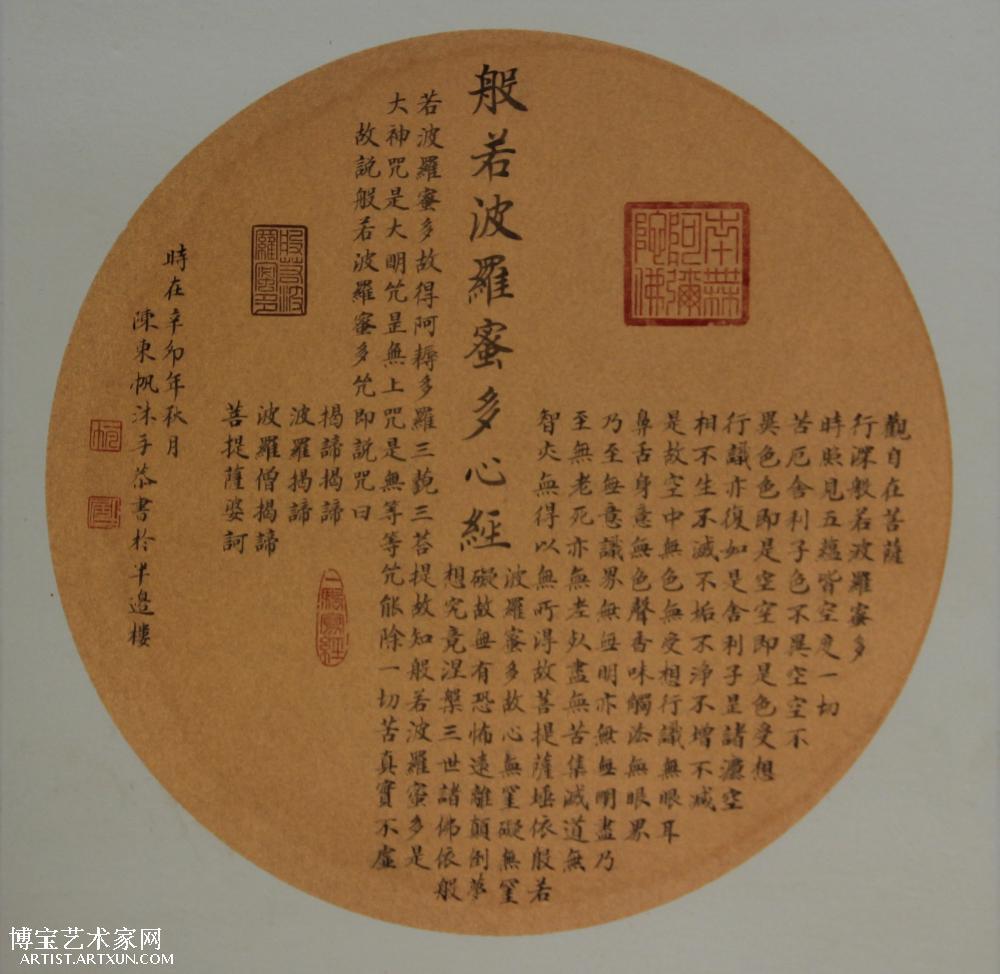 般若波羅蜜多心經
南無
阿彌
陀佛
觀自在菩薩
行深般若波羅蜜多
時照見五蘊皆空度一切
苦厄舍利子色不異空空不
異色色即是空空即是色受想
行識亦復如是舍利子是諸灋空
相不生不滅不垢不淨不增不减
是故空中無色無受想行識無眼耳
鼻舌身意無色聲香味觸法無眼界
乃至無意識界無無明亦無無明盡乃
至無老死亦無老死盡無苦集滅道無
智亦無得以無所得故菩提薩埵依般若
波羅蜜多故心無罣礙無罣
礙故無有恐怖遠離顛倒夢
想究竟涅槃三世諸佛依般
若波羅蜜多故得阿耨多羅三藐三菩提故知般若波羅蜜多是
大神咒是大明咒是無上咒是無等等咒能除一切苦真實不虛
故說般若波羅蜜多咒即說咒曰
揭諦揭諦
波羅揭諦
波羅僧揭諦
菩提薩婆訶
般若波
羅蜜多
時在辛卯年秋月
陳東帆沐手恭書於半邊樓
博宝艺术家网
ARTIST.ARTXUN.COM